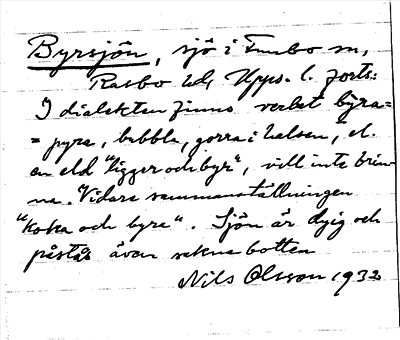 Byrsjön, sjö i Funbo sn,
Rasbo hd, Upps. l. forts:
I dialekten finns verbet byra=
= pyra, bubbla, gorra i halsen, el.
en eld "ligger och byr", vill inte brin-
na. Vidare sammanställningen
"koka och byra". Sjön är dyig och
påstås även sakna botten
Nils Olsson 1932